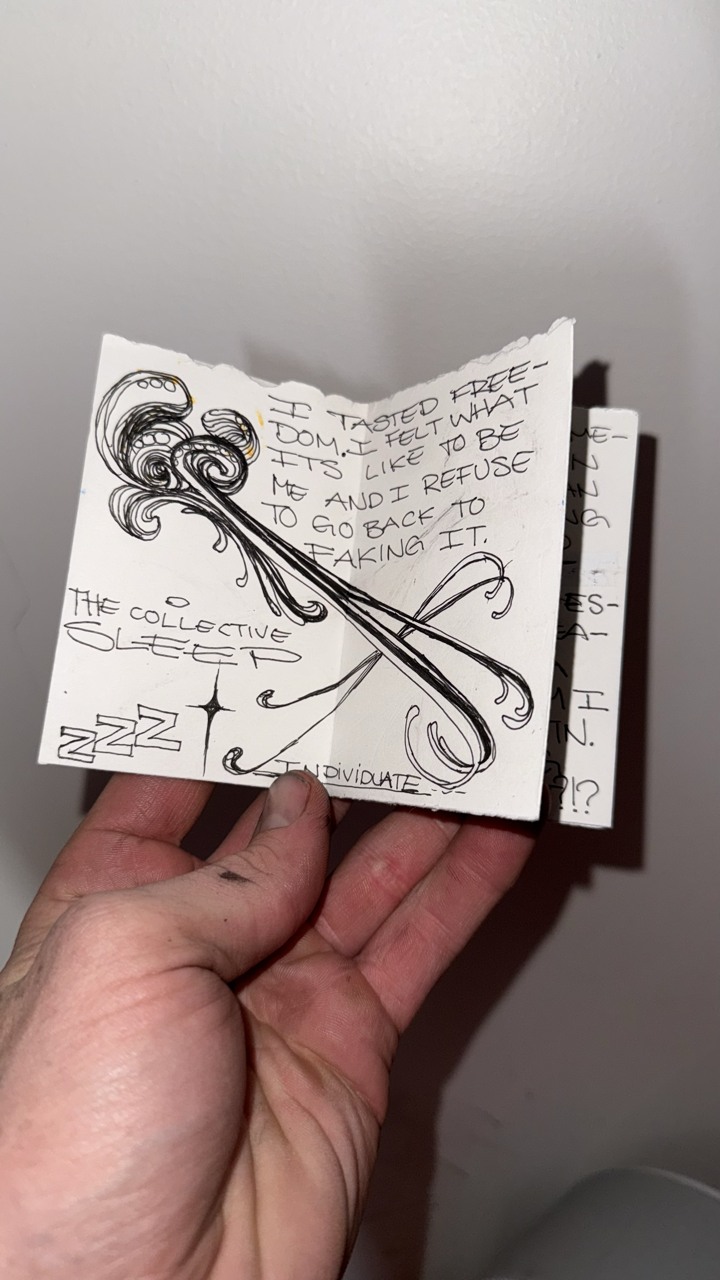 I TASTED FREE-
DOM. I FELT WHAT
ITS LIKE TO BE
ME AND I REFUSE
TO GO BACK TO
FAKING IT.
THE COLLECTIVE
SLEEP
ZZZ
INDIVIDUATE...
ME-
N
AN
NG
ES-
EA-
I
TN.
?!?